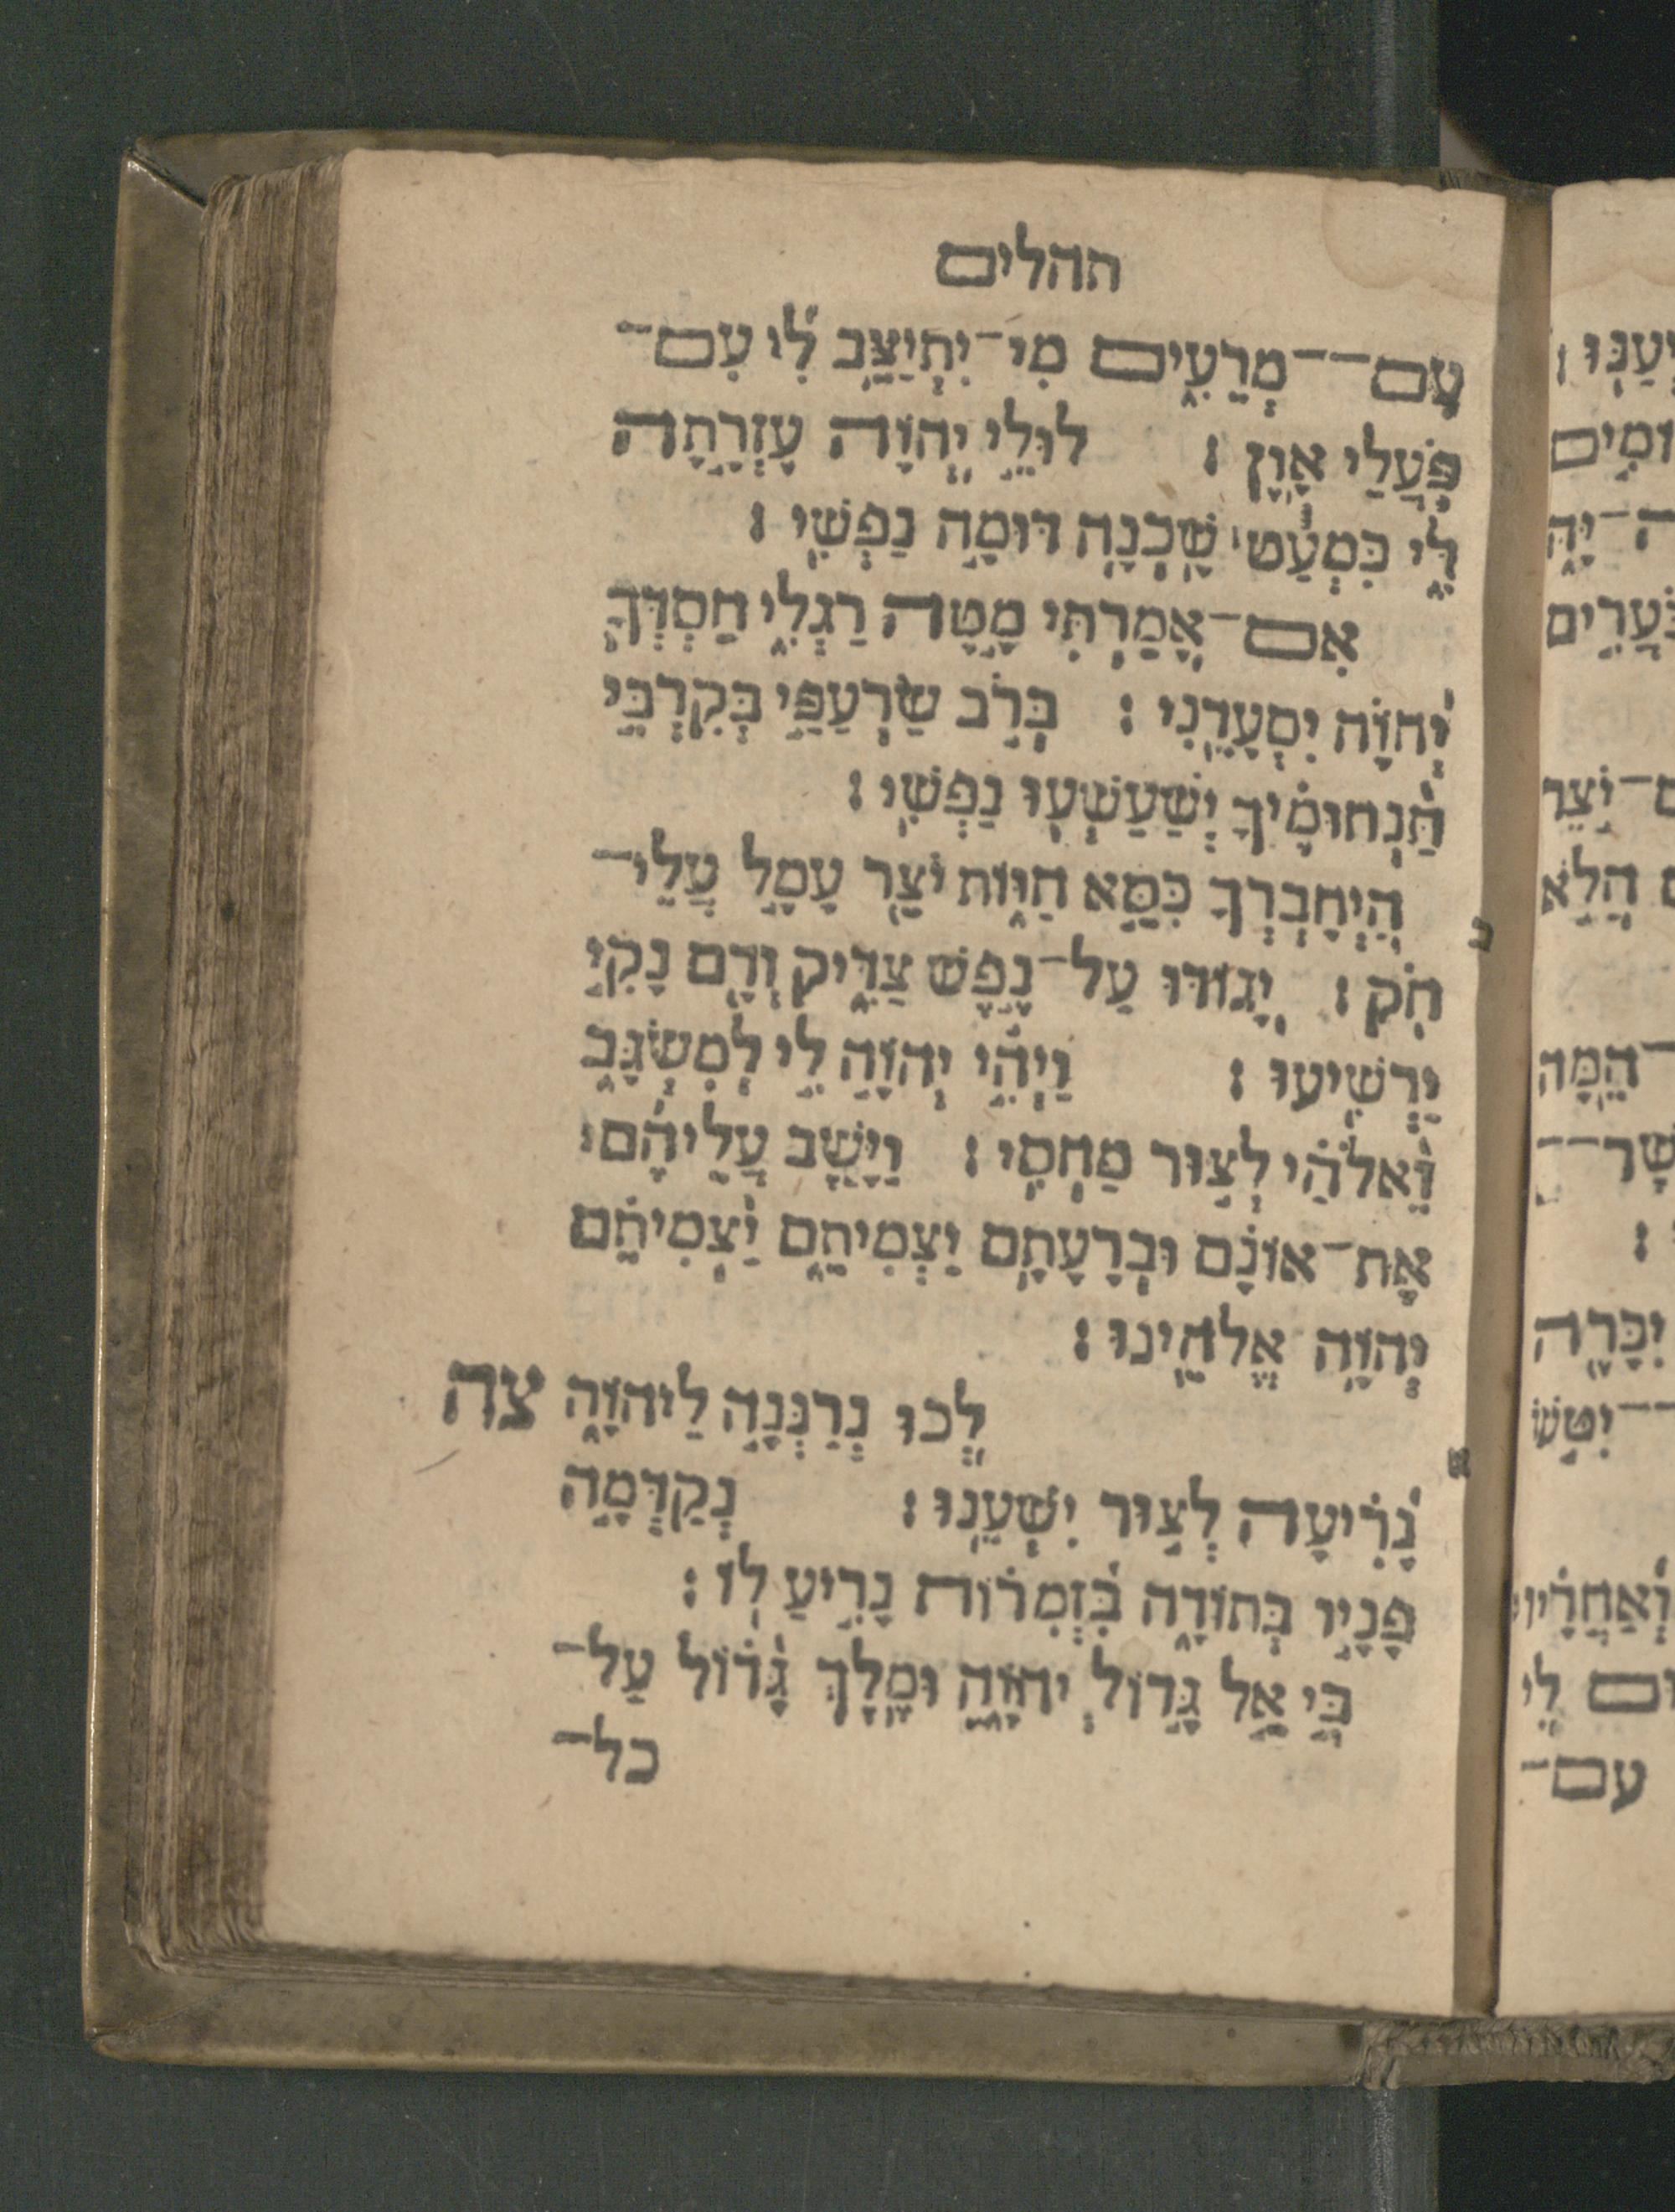 תהלים
עִם־־מְרֵעִים מִי־יִתְיַצֵּב לִי עִם־
פֹּעֲלֵי אָוֶן׃ לוּלֵי יְהוָה עֶזְרָתָה
לִּי כִּמְעַט׀ שָׁכְנָה דוּמָה נַפְשִׁי׃
אִם־אָמַרְתִּי מָטָה רַגְלִי חַסְדְּךָ
יְהוָה יִסְעָדֵנִי׃ בְּרֹב שַׂרְעַפַּי בְּקִרְבִּי
תַּנְחוּמֶיךָ יְשַׁעַשְׁעוּ נַפְשִׁי׃
הַיְחָבְרְךָ כִּסֵּא הַוּוֹת יֹצֵר עָמָל עֲלֵי־
חֹק׃ יָגוֹדּוּ עַל־נֶפֶשׁ צַדִּיק וְדָם נָקִי
יַרְשִׁיעוּ׃ וַיְהִי יְהוָה לִי לְמִשְׂגָּב
וֵאלֹהַי לְצוּר מַחְסִי׃ וַיָּשֶׁב עֲלֵיהֶם׀
אֶת־אוֹנָם וּבְרָעָתָם יַצְמִיתֵם יַצְמִיתֵם
יְהוָה אֱלֹהֵינוּ׃
לְכוּ נְרַנְּנָה לַיהוָה צה
נָרִיעָה לְצוּר יִשְׁעֵנוּ׃ נְקַדְּמָה
פָנָיו בְּתוֹדָה בִּזְמִרוֹת נָרִיעַ לוֹ׃
כִּי אֵל גָּדוֹל יְהוָה וּמֶלֶךְ גָּדוֹל עַל־
כל־